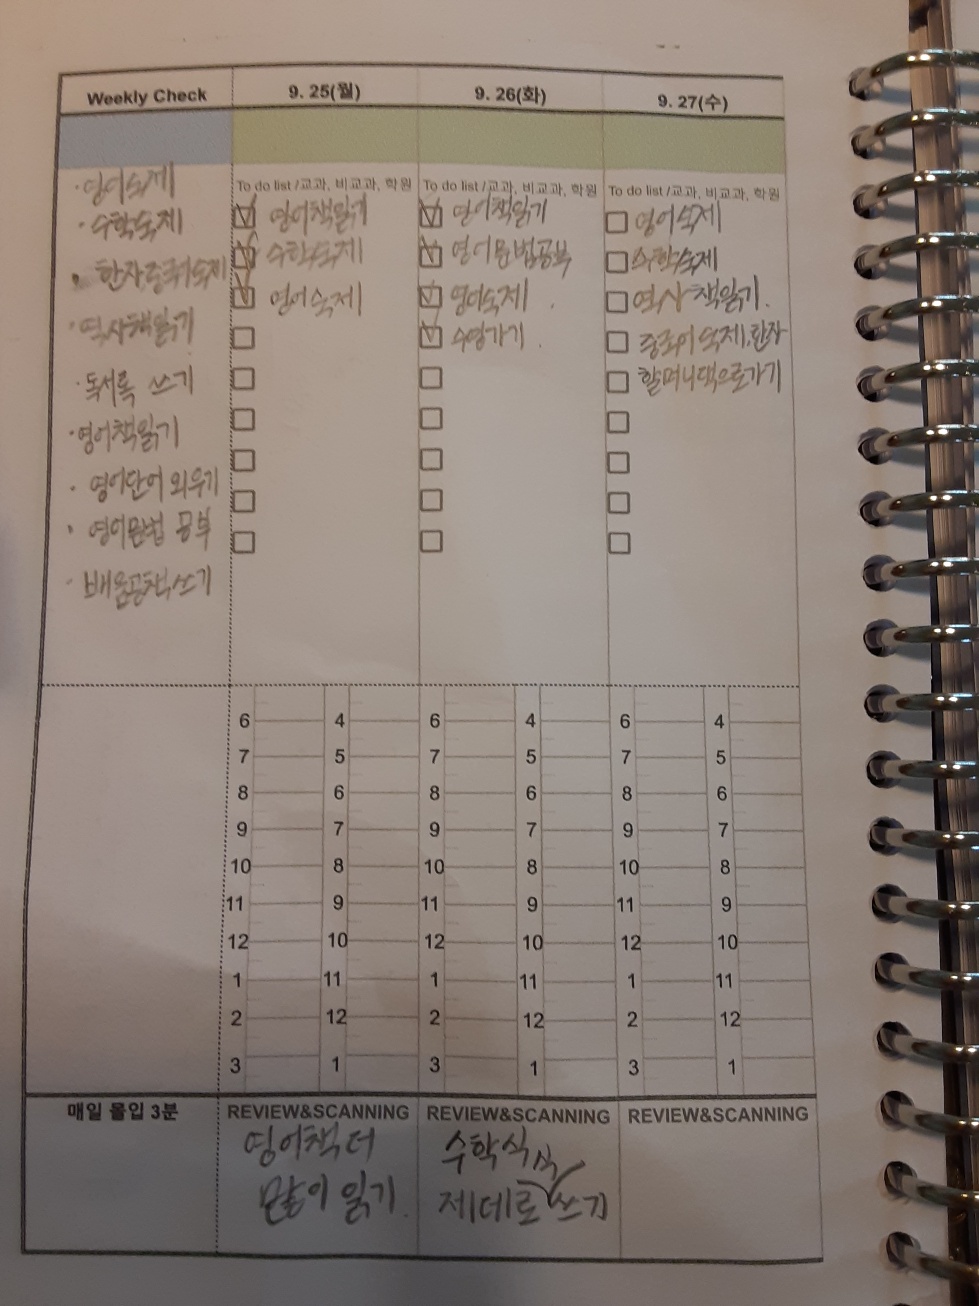 Weekly Check
9. 25(월)
9. 26(화)
9. 27(수)
· 영어숙제
· 수학숙제
· 한자중국숙제
· 역사책읽기
· 독서록 쓰기
· 영어책읽기
· 영어단어 외우기
· 영어문법 공부
· 배움공책쓰기
To do list /교과, 비교과, 학원
영어책읽기
수학숙제
영어숙제
To do list /교과, 비교과, 학원
영어책읽기
영어문법공부
영어숙제.
수영가기.
To do list /교과, 비교과, 학원
영어숙제
수학숙제
역사책읽기.
중국어숙제,한자
할머니댁으로가기
6 4
7 5
8 6
9 7
10 8
11 9
12 10
1 11
2 12
3 1
6 4
7 5
8 6
9 7
10 8
11 9
12 10
1 11
2 12
3 1
6 4
7 5
8 6
9 7
10 8
11 9
12 10
1 11
2 12
3 1
매일 몰입 3분
REVIEW&SCANNING
영어책더
많이 읽기.
REVIEW&SCANNING
수학식
제데로 쓰기
REVIEW&SCANNING